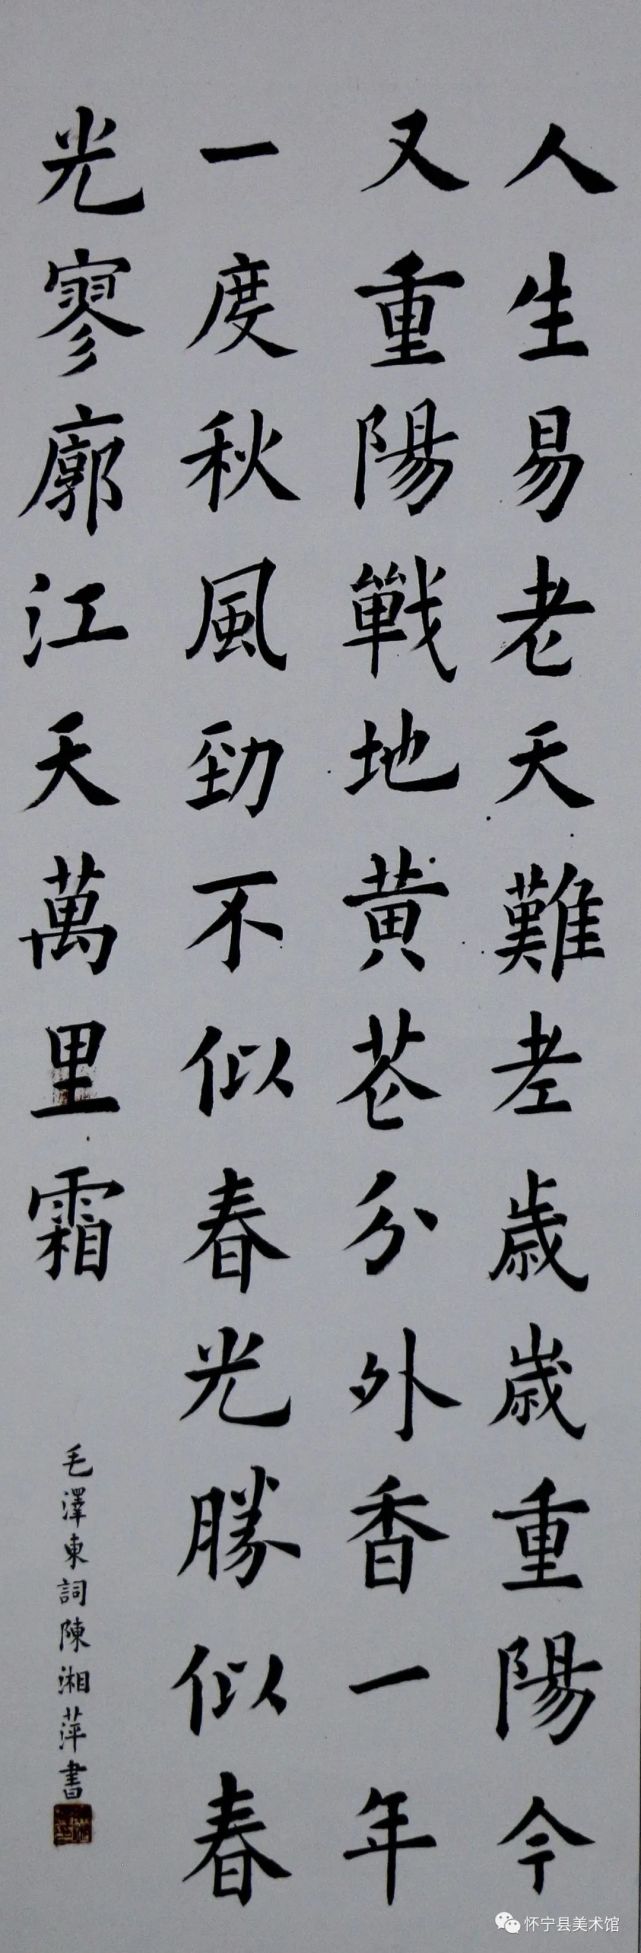 人生易老天難老歳歳重陽今
又重陽戰地黄花分外香一年
一度秋風勁不似春光勝似春
光寥廓江天萬里霜
毛澤東詞陳湘萍書
怀宁县美术馆